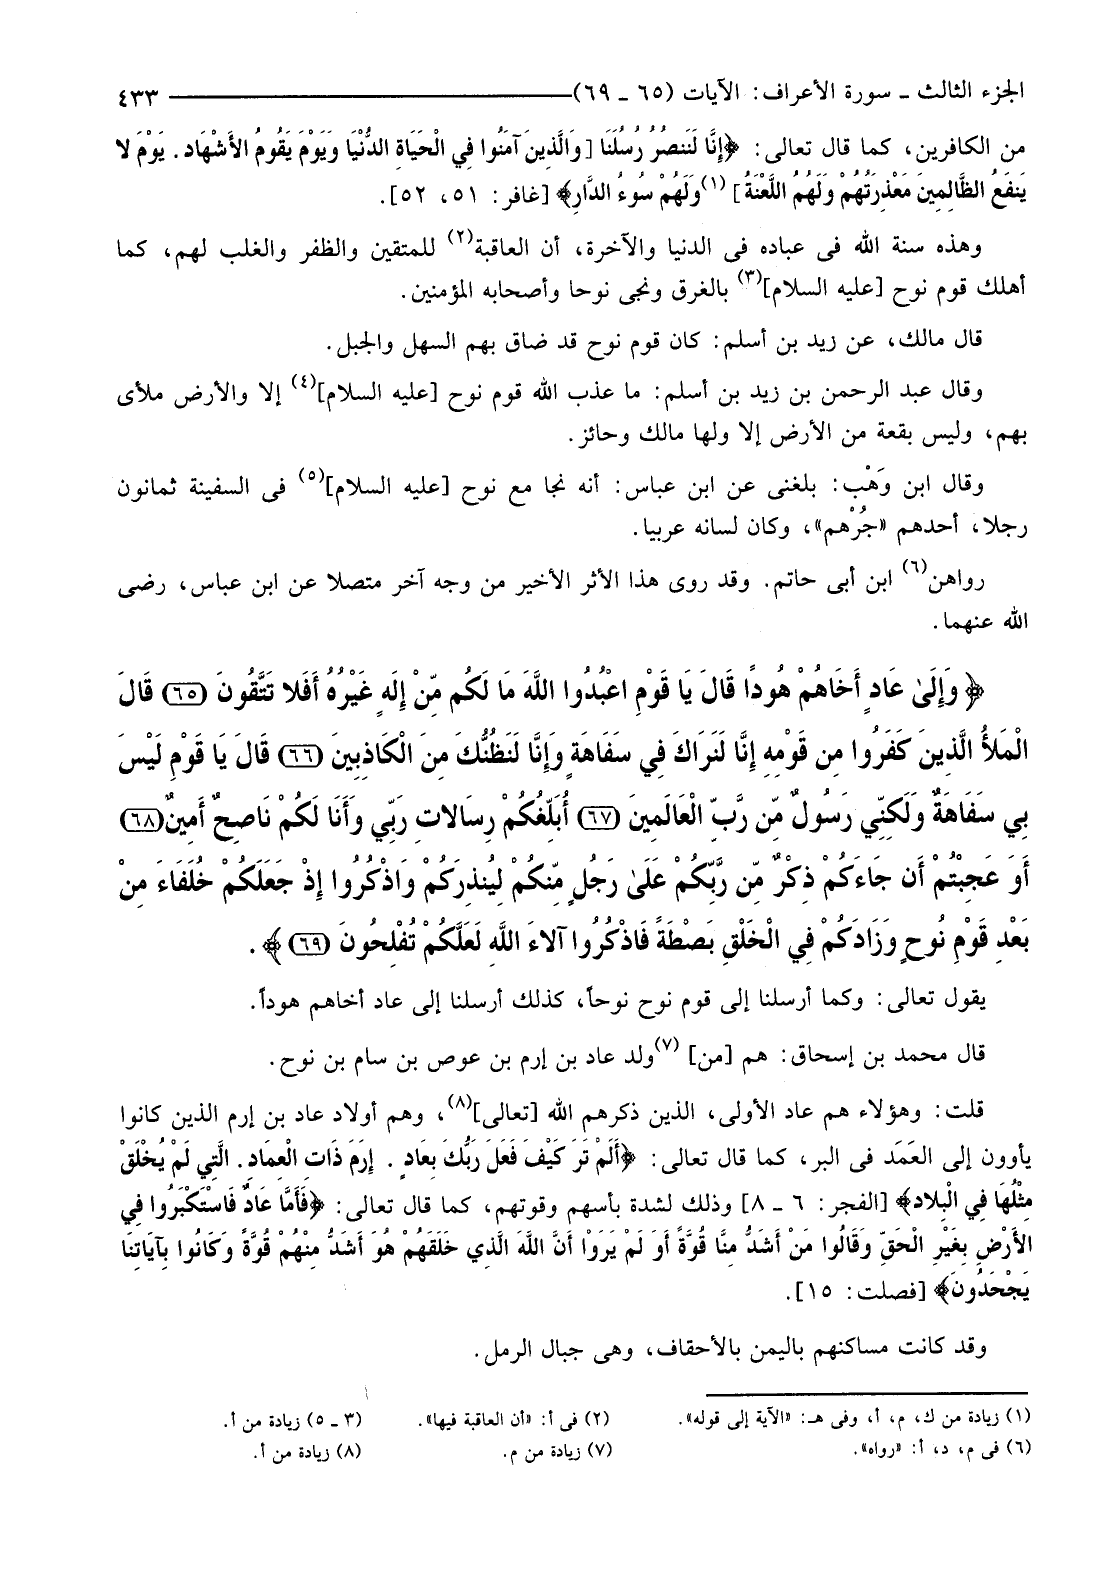 الجزء الثالث ـ سورة الأعراف: الآيات (٦٥ ـ ٦٩) ٤٣٣
من الكافرين، كما قال تعالى: ﴿إِنَّا لَنَنصُرُ رُسُلَنَا [وَالَّذِينَ آمَنُوا فِي الْحَيَاةِ الدُّنْيَا وَيَوْمَ يَقُومُ الأَشْهَاد. يَوْمَ لا
يَنفَعُ الظَّالِمِينَ مَعْذِرَتُهُمْ وَلَهُمُ اللَّعْنَةُ] (١)وَلَهُمْ سُوءُ الدَّارِ﴾ [غافر: ٥١، ٥٢].
وهذه سنة الله فى عباده فى الدنيا والآخرة، أن العاقبة(٢) للمتقين والظفر والغلب لهم، كما
أهلك قوم نوح [عليه السلام](٣) بالغرق ونجى نوحا وأصحابه المؤمنين.
قال مالك، عن زيد بن أسلم: كان قوم نوح قد ضاق بهم السهل والجبل.
وقال عبد الرحمن بن زيد بن أسلم: ما عذب الله قوم نوح [عليه السلام](٤) إلا والأرض ملأى
بهم، وليس بقعة من الأرض إلا ولها مالك وحائز.
وقال ابن وَهْب: بلغنى عن ابن عباس: أنه نجا مع نوح [عليه السلام](٥) فى السفينة ثمانون
رجلا، أحدهم «جُرْهم»، وكان لسانه عربيا.
رواهن(٦) ابن أبى حاتم. وقد روى هذا الأثر الأخير من وجه آخر متصلا عن ابن عباس، رضى
الله عنهما.
﴿وَإِلَىٰ عَادٍ أَخَاهُمْ هُودًا قَالَ يَا قَوْمِ اعْبُدُوا اللَّهَ مَا لَكُم مِّنْ إِلَهٍ غَيْرُهُ أَفَلا تَتَّقُونَ (٦٥) قَالَ
الْمَلأُ الَّذِينَ كَفَرُوا مِن قَوْمِهِ إِنَّا لَنَرَاكَ فِي سَفَاهَةٍ وَإِنَّا لَنَظُنُّكَ مِنَ الْكَاذِبِينَ (٦٦) قَالَ يَا قَوْمِ لَيْسَ
بِي سَفَاهَةٌ وَلَكِنِّي رَسُولٌ مِّن رَّبِّ الْعَالَمِينَ (٦٧) أُبَلِّغُكُمْ رِسَالاتِ رَبِّي وَأَنَا لَكُمْ نَاصِحٌ أَمِينٌ(٦٨)
أَوَ عَجِبْتُمْ أَن جَاءَكُمْ ذِكْرٌ مِّن رَّبِّكُمْ عَلَىٰ رَجُلٍ مِّنكُمْ لِيُنذِرَكُمْ وَاذْكُرُوا إِذْ جَعَلَكُمْ خُلَفَاءَ مِنْ
بَعْدِ قَوْمِ نُوحٍ وَزَادَكُمْ فِي الْخَلْقِ بَصْطَةً فَاذْكُرُوا آلاءَ اللَّهِ لَعَلَّكُمْ تُفْلِحُونَ (٦٩)﴾.
يقول تعالى: وكما أرسلنا إلى قوم نوح نوحاً، كذلك أرسلنا إلى عاد أخاهم هوداً.
قال محمد بن إسحاق: هم [من] (٧)ولد عاد بن إرم بن عوص بن سام بن نوح.
قلت: وهؤلاء هم عاد الأولى، الذين ذكرهم الله [تعالى](٨)، وهم أولاد عاد بن إرم الذين كانوا
يأوون إلى العَمَد فى البر، كما قال تعالى: ﴿أَلَمْ تَرَ كَيْفَ فَعَلَ رَبُّكَ بِعَادٍ . إِرَمَ ذَاتِ الْعِمَادِ. الَّتِي لَمْ يُخْلَقْ
مِثْلُهَا فِي الْبِلادِ﴾ [الفجر: ٦ ـ ٨] وذلك لشدة بأسهم وقوتهم، كما قال تعالى: ﴿فَأَمَّا عَادٌ فَاسْتَكْبَرُوا فِي
الأَرْضِ بِغَيْرِ الْحَقِّ وَقَالُوا مَنْ أَشَدُّ مِنَّا قُوَّةً أَوَ لَمْ يَرَوْا أَنَّ اللَّهَ الَّذِي خَلَقَهُمْ هُوَ أَشَدُّ مِنْهُمْ قُوَّةً وَكَانُوا بِآيَاتِنَا
يَجْحَدُونَ﴾ [فصلت: ١٥].
وقد كانت مساكنهم باليمن بالأحقاف، وهى جبال الرمل.
(١) زيادة من ك، م، أ، وفى هـ: «الآية إلى قوله». (٢) فى أ: «أن العاقبة فيها». (٣ ـ ٥) زيادة من أ.
(٦) فى م، د، أ: «رواه». (٧) زيادة من م. (٨) زيادة من أ.